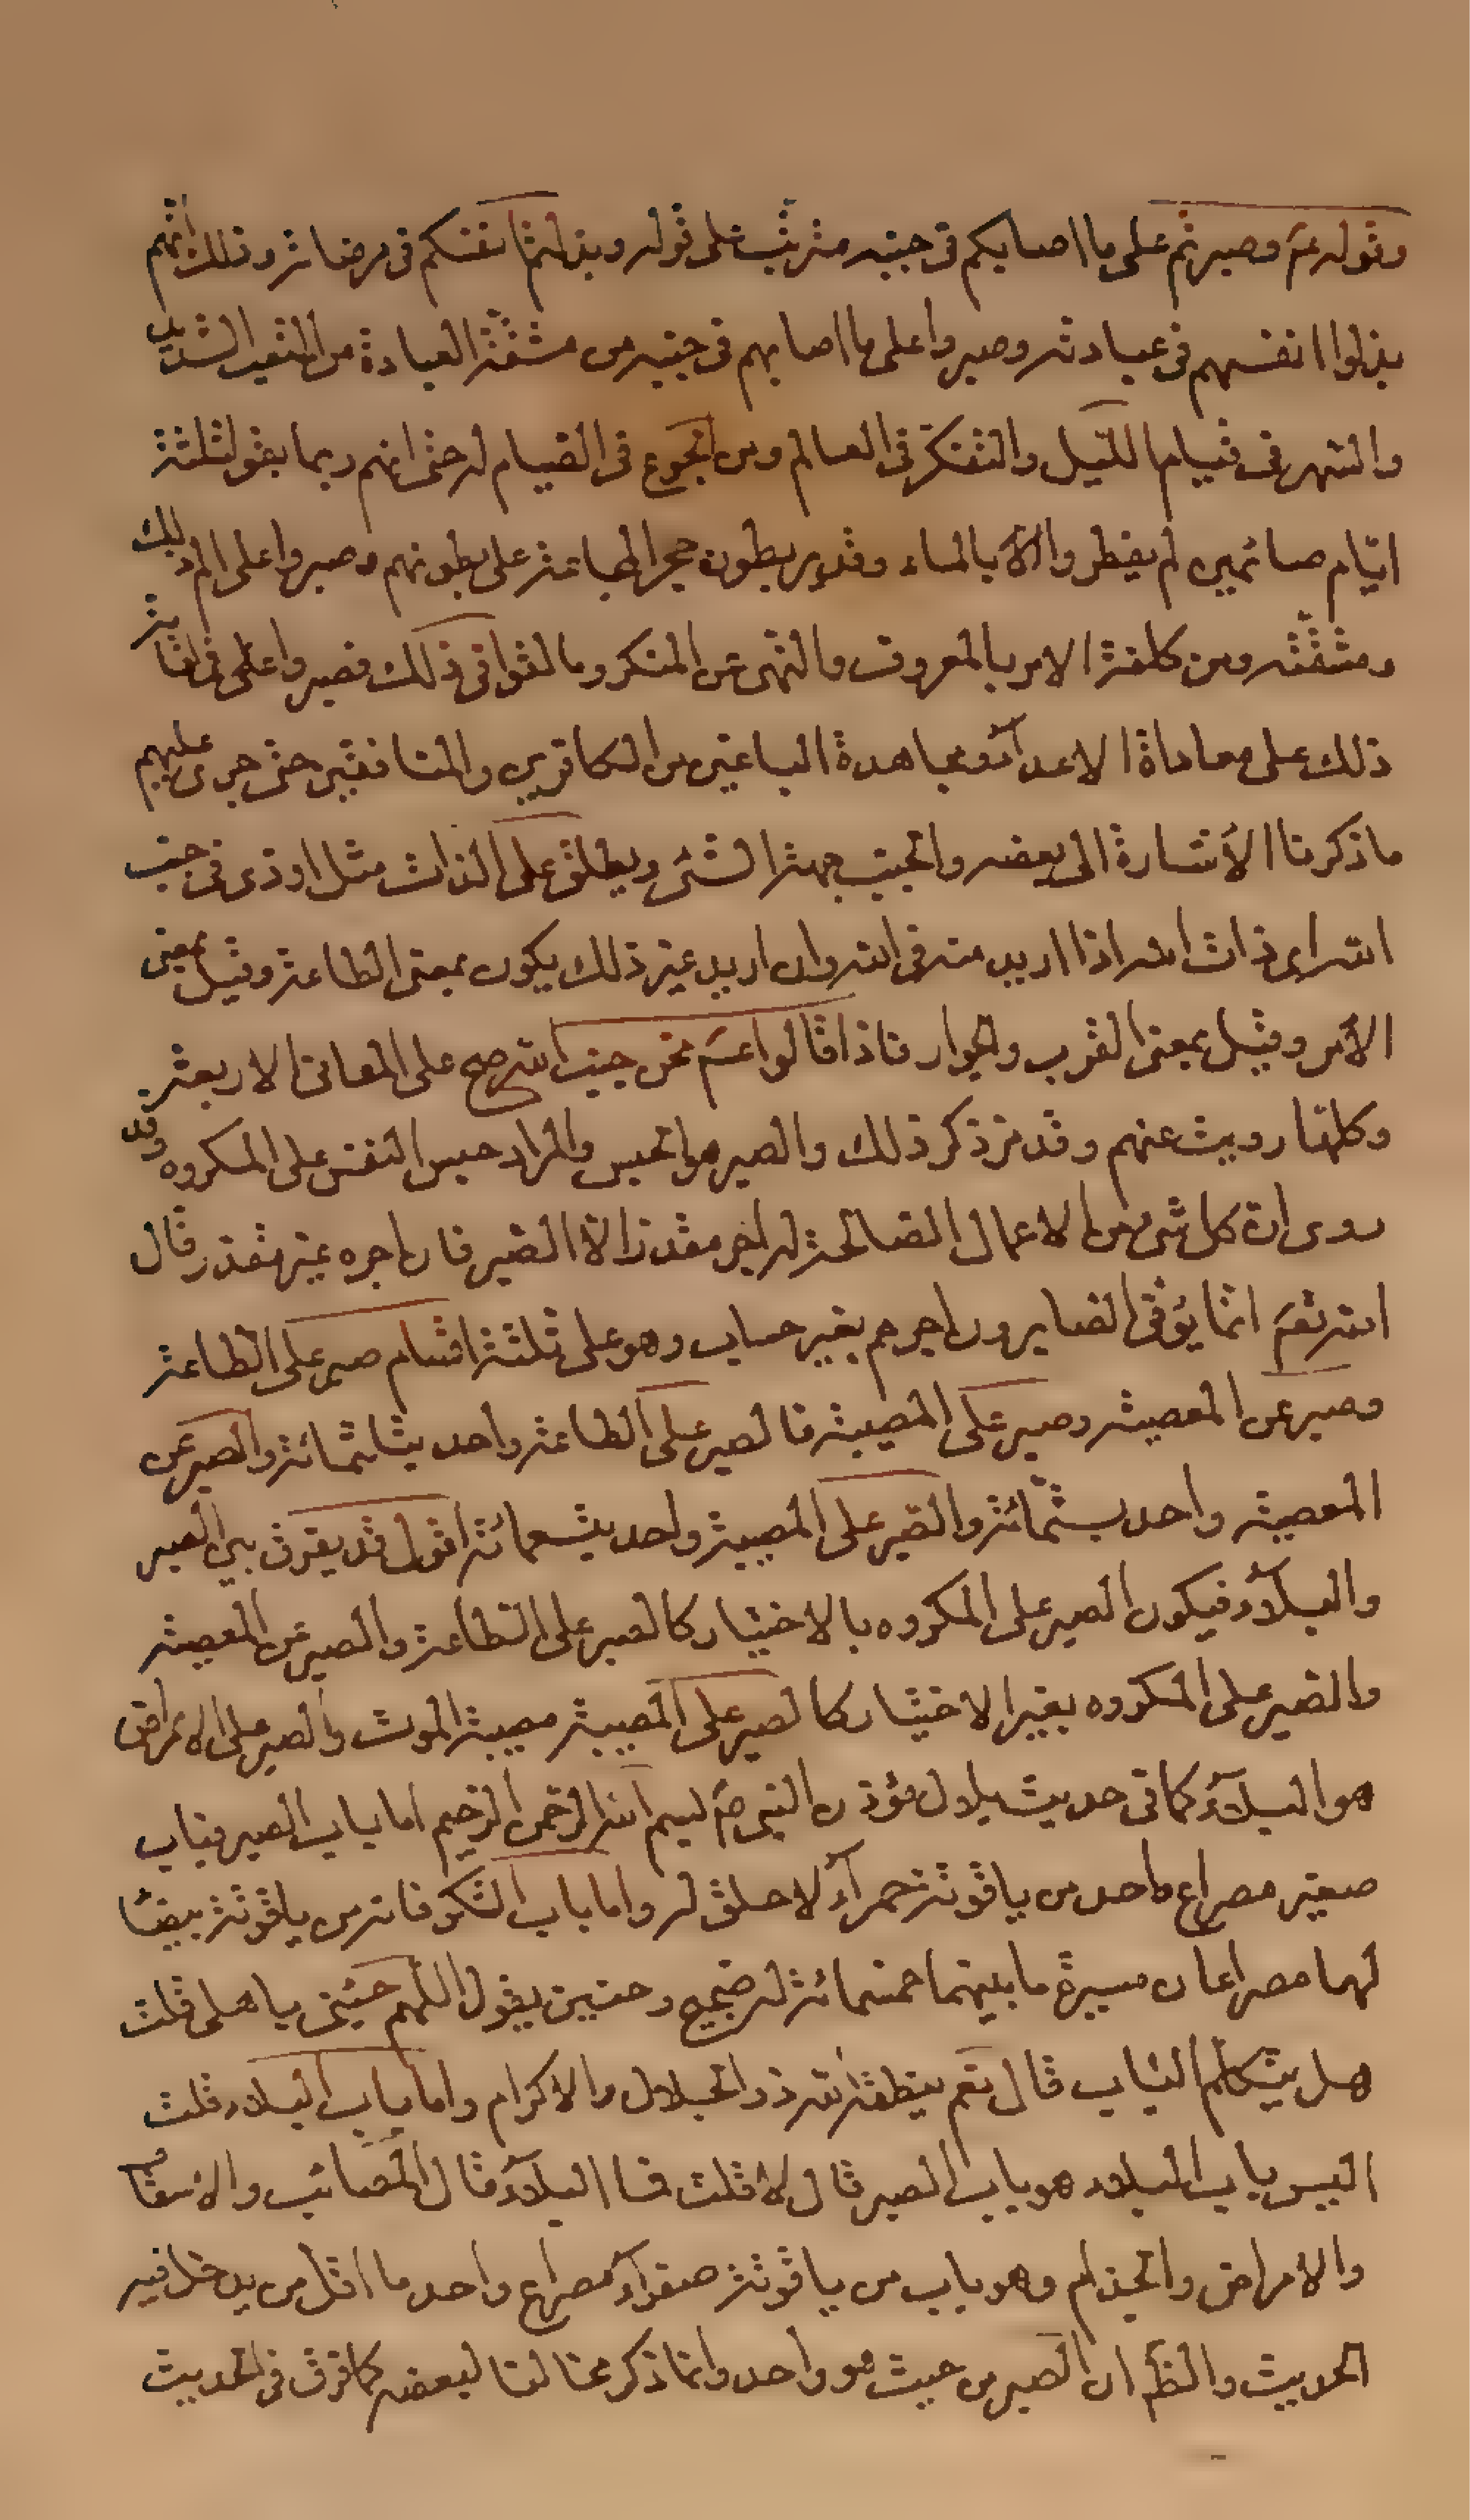 وقوله ع۪م وصبرتم على ما اصابكم فى جنبه مترتب على قوله وبذلتم انفسكم فى مرضاته وذلك انهم
بذلوا انفسهم فى عبادته وصبروا على ما اصابهم فى جنبه من مشقة العبادة من التعب الشديد
والسهر فى قيام الليل والتفكر فى العالم ومن الجوع فى الصيام له حتى انهم ربما بقوا ثلثة
ايّام صائمين لم يفطروا الّا بالماء وقد يربطون حجر المجاعة على بطونهم وصبروا على الم ذلك
ومشقّته ومن كلفة الامر بالمعروف والنهى عن المنكر وما لقوا فى ذلك فصبروا على مقاساته
ذلك على معاداة الاعدآء ومجاهدة الباغين من الكافرين والمنافقين حتى جرى عليهم
ما ذكرنا الأشارة الى بعضه والجنب جهة الشئ ويطلق على الذات مثل اوذى فى جنب
الله اى ذات الله اذا اريد منه فى الله وان اريد غير ذلك يكون بمعنى الطاعة وقيل بمعنى
الأمر وقيل بمعنى القرب والجوار فاذا قالوا ع۪م نحن جنب الله صح على المعانى الاربعة
وكلها رويت عنهم وقد مرّ ذكر ذلك والصبر هو الحبس والمراد حبس النفس على المكروه وقد
روى ان كل شئ من الاعمال الصالحة له اجر مقدر الّا الصبر فان اجره غير مقدر قال
الله تعم انّما يوفّى الصابرون اجرهم بغير حساب وهو على ثلثة اقسام صبر على الطاعة
وصبر عن المعصية وصبر على المصيبة فالصبر على الطاعة واحد بثلثمائة والصبر عن
المعصية واحد بستّمائة والصبر على المصيبة واحد بتسعمائة اقول قد يفرق بين الصبر
والبلآء فيكون الصبر على المكروه بالاختيار كالصبر على الطاعة والصبر عن المعصية
والصبر على المكروه بغير الاختيار كالصبر على المصيبة مصيبة الموت والصبر على الامراض
هو البلآء كما فى حديث بلال مؤذن النبى ص۪م بسم الله الرحمن الرحيم اما باب الصبر فباب
صغير مصراع واحد من ياقوتة حمرآء لا حلق له واما باب الشكر فانه من ياقوتة بيضآ
لهما مصراعان مسيرة ما بينهما خمسمائة له ضجيج وحنين يقول اللّهم جئنى باهلى قلت
هل يتكلم الباب قال نعم ينطقه الله ذو الجلال والاكرام واما باب البلاء قلت
اليس باب البلاء هو باب الصبر قال لا قلت فما البلآء قال المصائب والاسقام
والامراض والجذام وهو باب من ياقوتة صفرآء مصراع واحد ما اقل من يدخل فيه
الحديث والظّ ان الصبر من حيث هو واحد وانما ذكر مخالفا لبعضه كما فرق فى الحديث